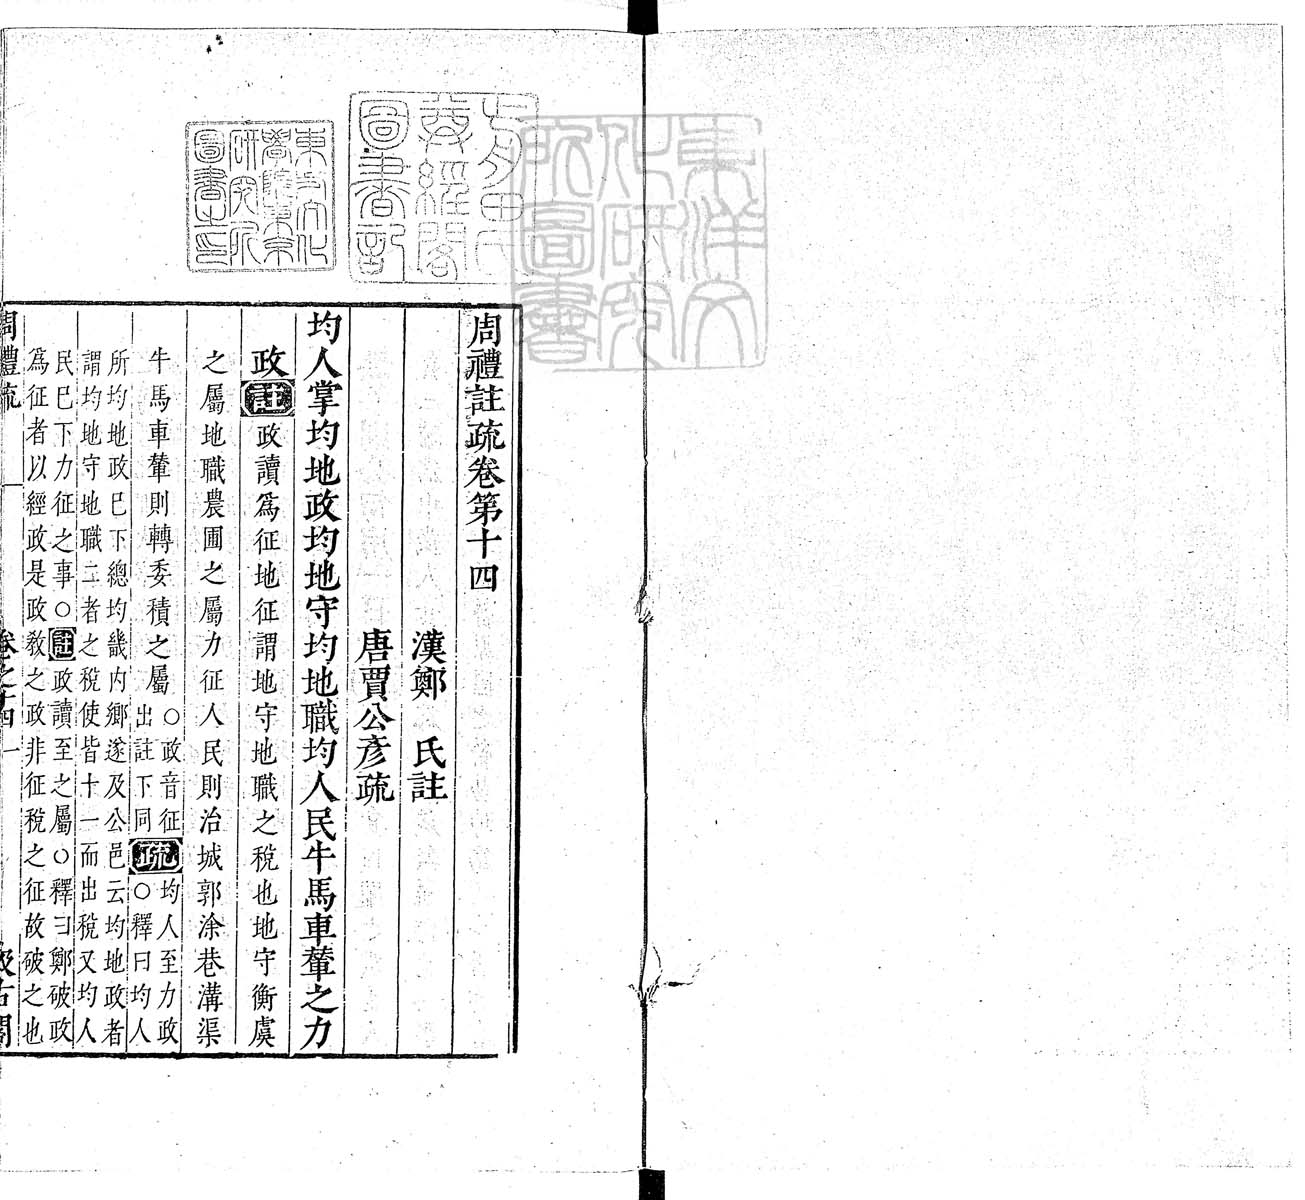 周禮註疏卷第十四
漢鄭 氏註
唐賈公彥疏
均人掌均地政均地守均地職均人民牛馬車輦之力
政註政讀爲征地征謂地守地職之稅也地守衡虞
之屬地職農圃之屬力征人民則治城郭涂巷溝渠
牛馬車輦則轉委積之屬○政音征
出註下同疏均人至力政
○釋曰均人
所均地政已下總均畿内鄉遂及公邑云均地政者
謂均地守地職二者之稅使皆十一而出稅又均人
民巳下力征之事○註政讀至之屬○釋曰鄭破政
爲征者以經政是政敎之政非征稅之征故破之也
周禮疏 卷之十四 一 汲古閣
東洋文化研究所圖書
有甲氏
尊經閣
圖書記
東方文化
學院東京
研究所
圖書之印